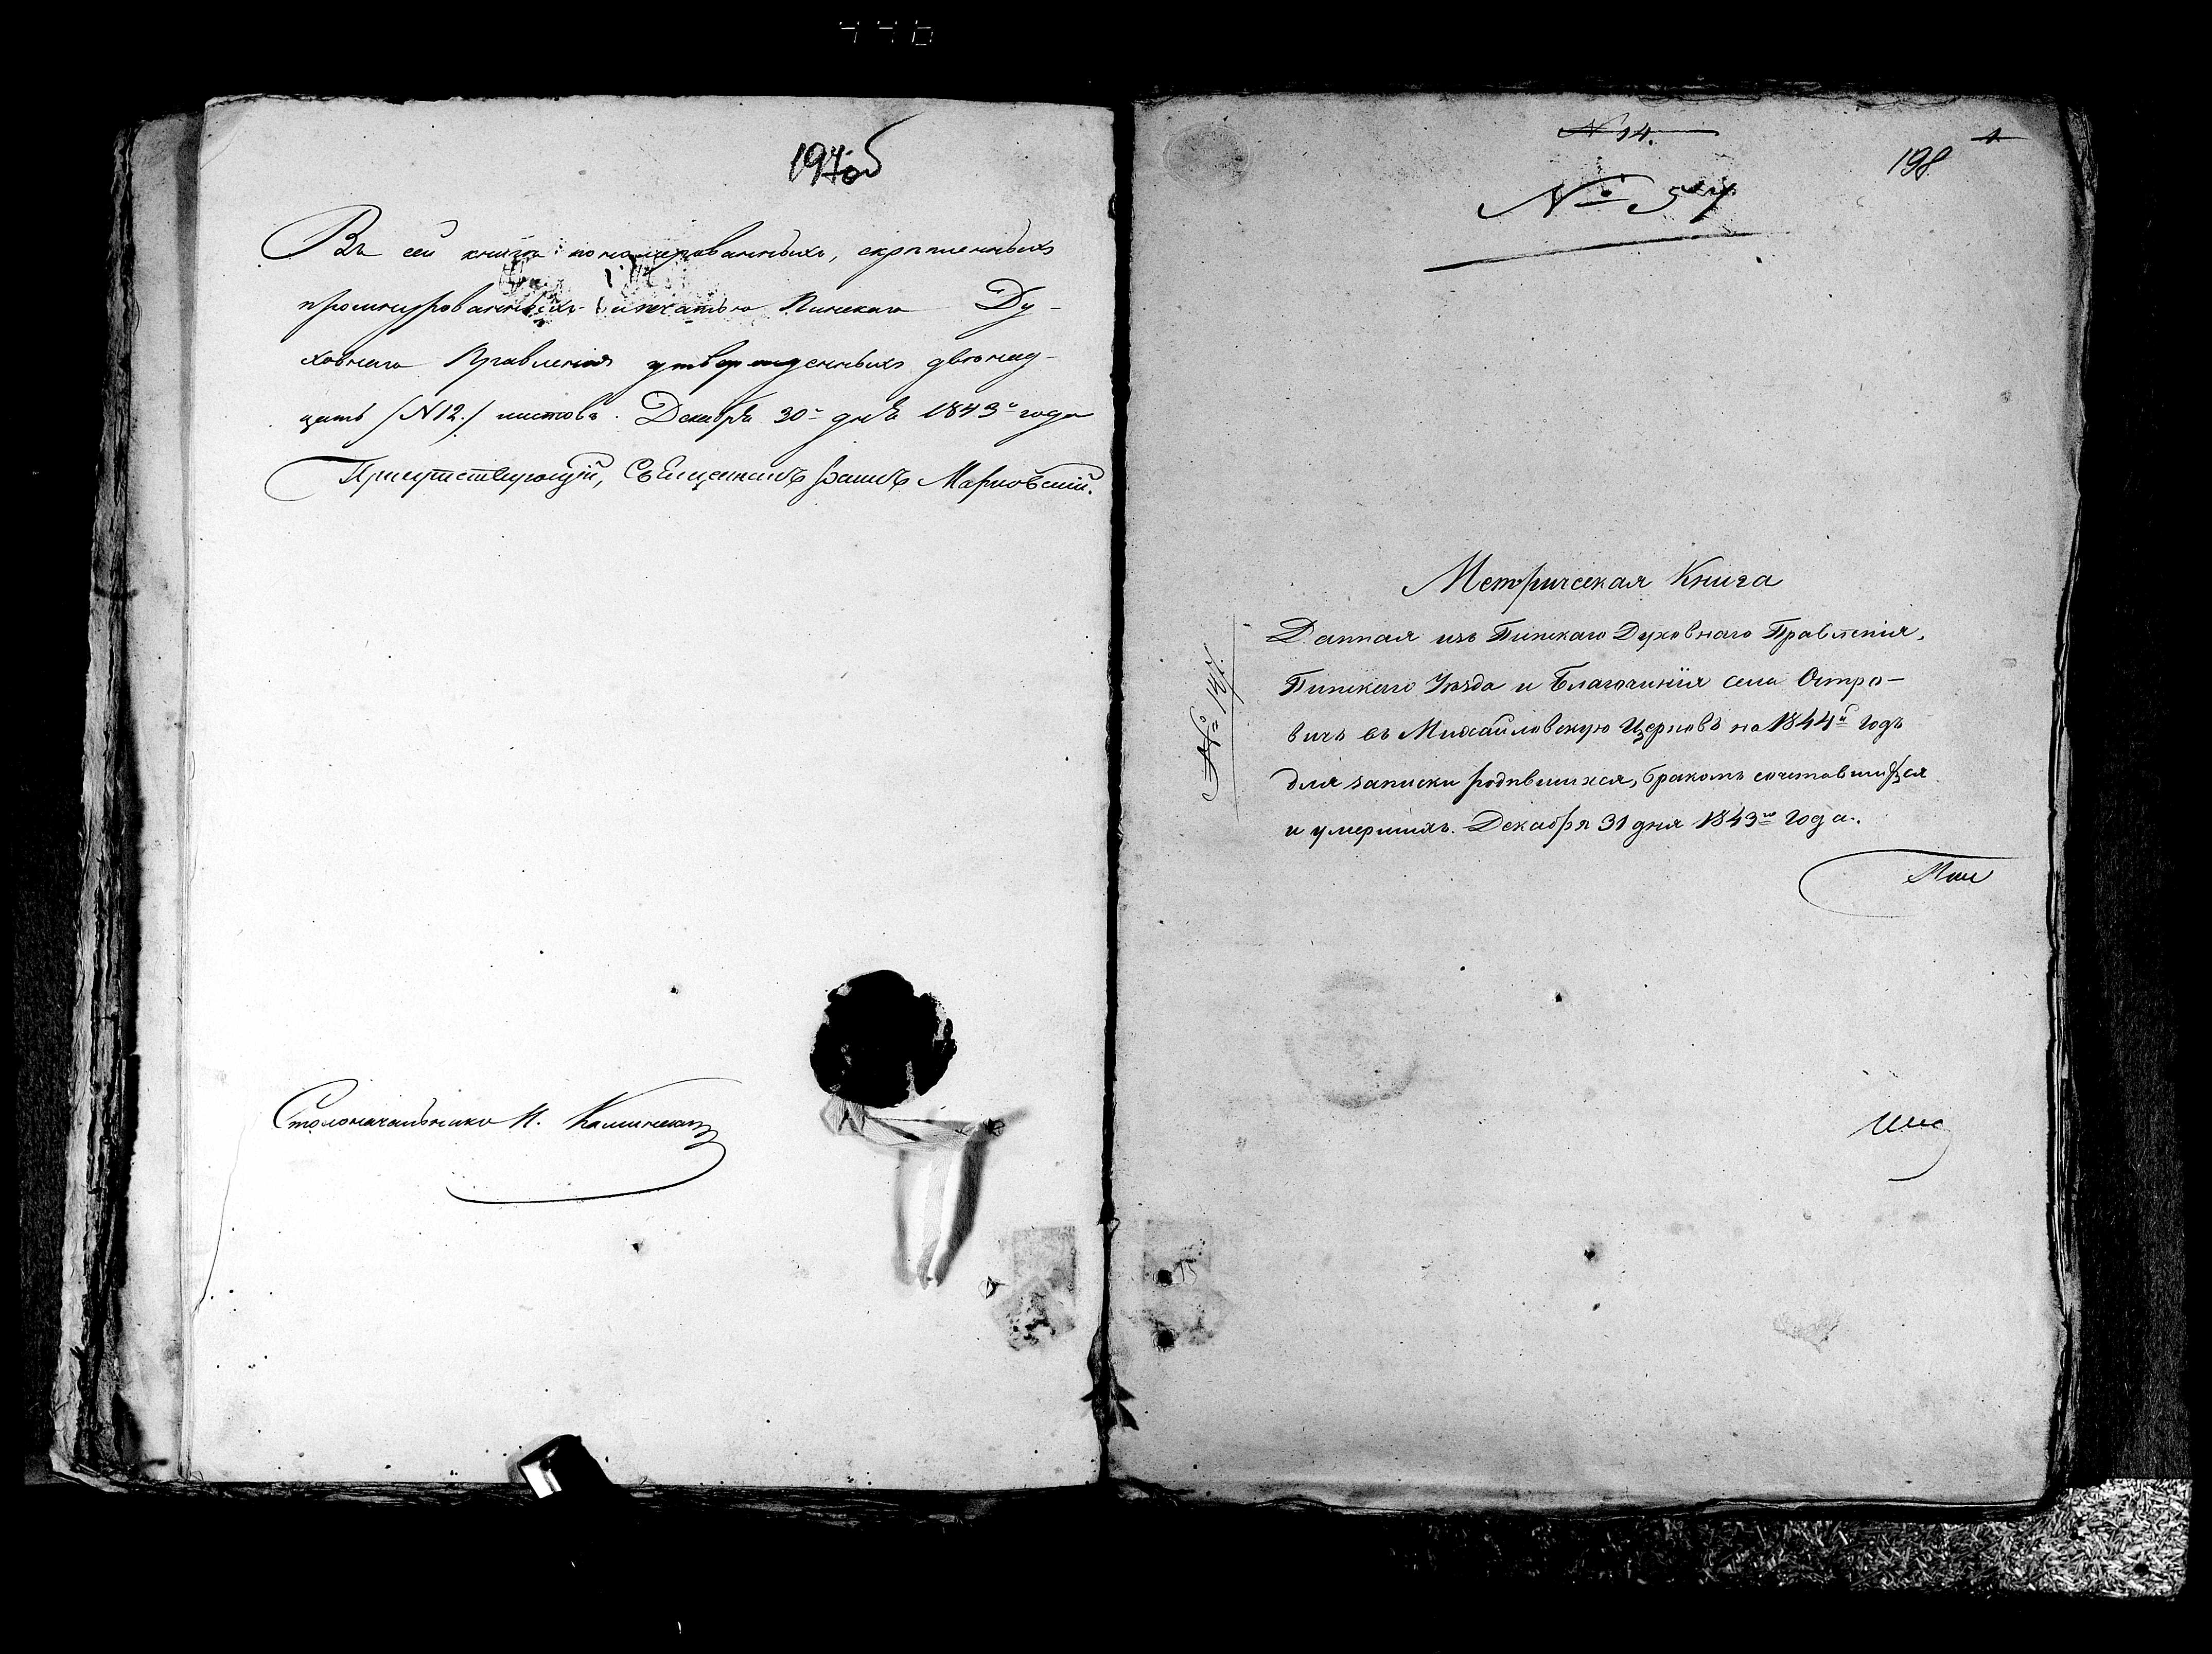 197об
Въ сей книгѣ пономерованныхъ, скрѣпленныхъ
прошнурованныхъ и печатью Пинскаго Ду-
ховнаго Правленія утвержденныхъ двѣнад-
цать /N12./ листовъ. Декабря 30 дня 1843 года
Присутствующій, Священникъ Марковскій.
Столоначальникъ Калинскій
N 14.
1
198
№ 57
Метрическая Книга
Данная изъ Пинскаго Духовнаго Правленія,
Пинскаго Уѣзда и Благочинія села Остро-
вичъ въ Михайловскую Церковь на 1844й годъ
для записки родившихся, бракомъ сочетавшихся
и умершихъ. Декабря 31 дня 1843го Года.
15